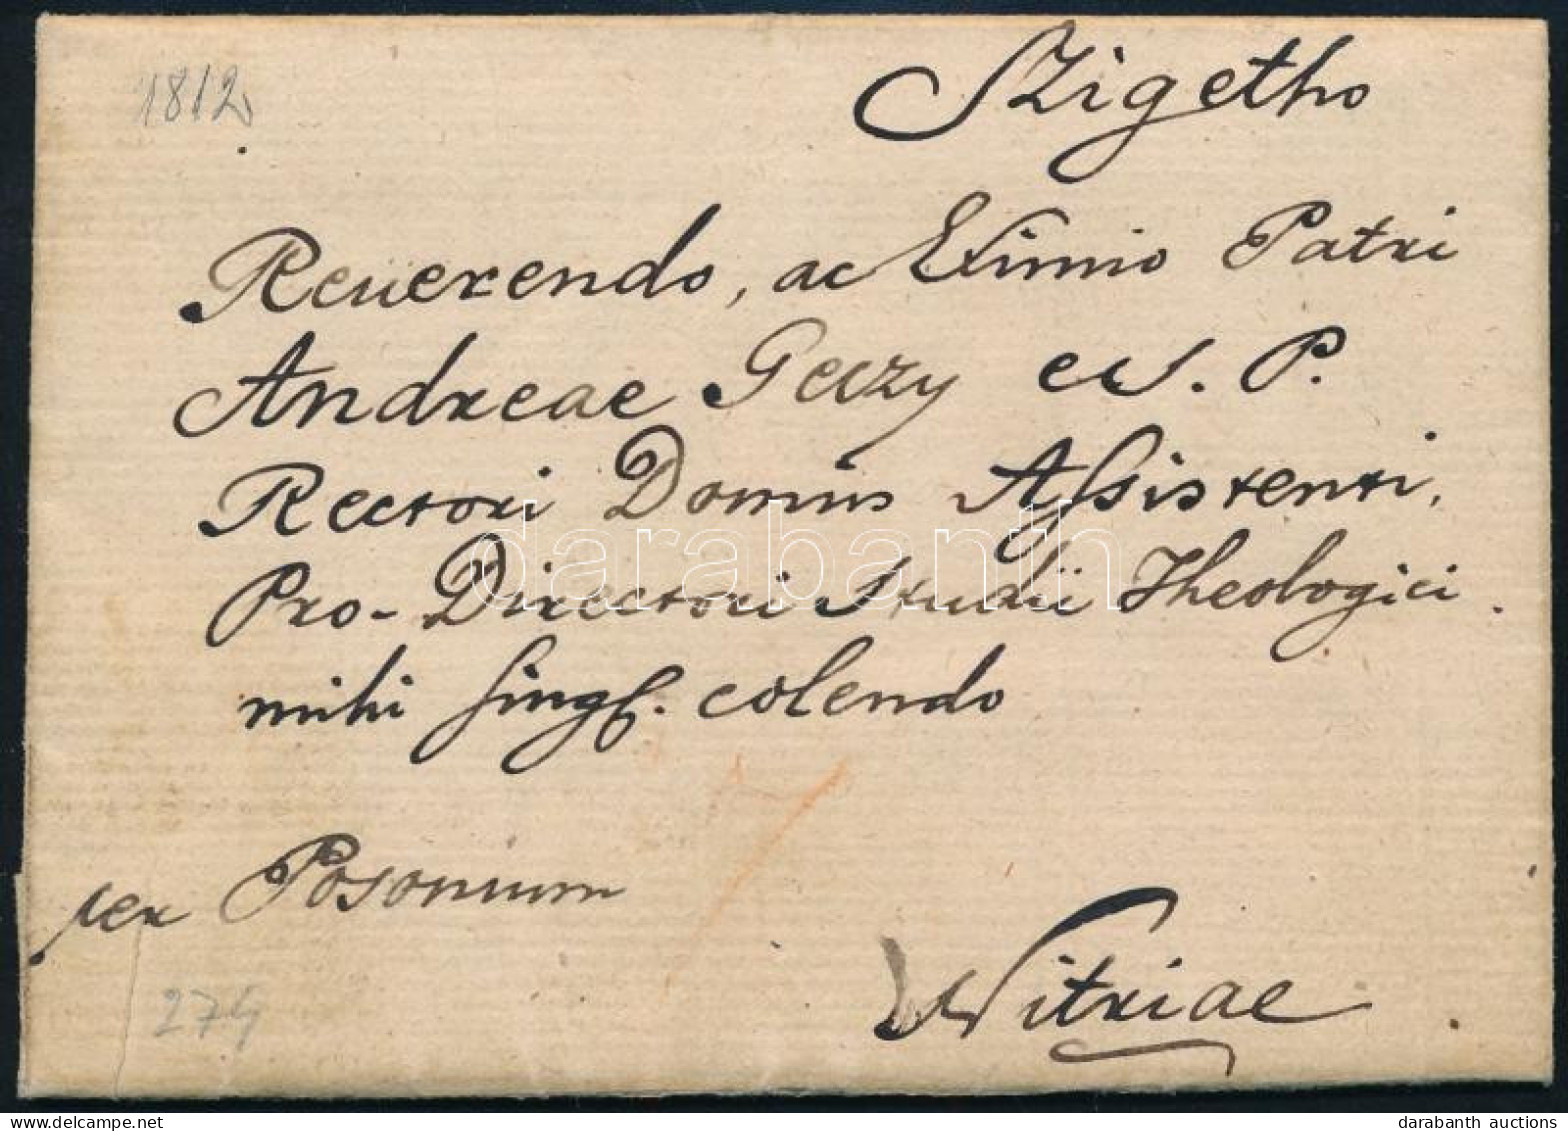 1812
Szigetho
Reverendo, ac Eximio Patri
Andreae Geczy e S. P.
Rectori Domus Assistenti,
Pro-Directori Studii Theologici
mihi singl. colendo
per Posonium
Nitriae
darabanth
darabanth auctions